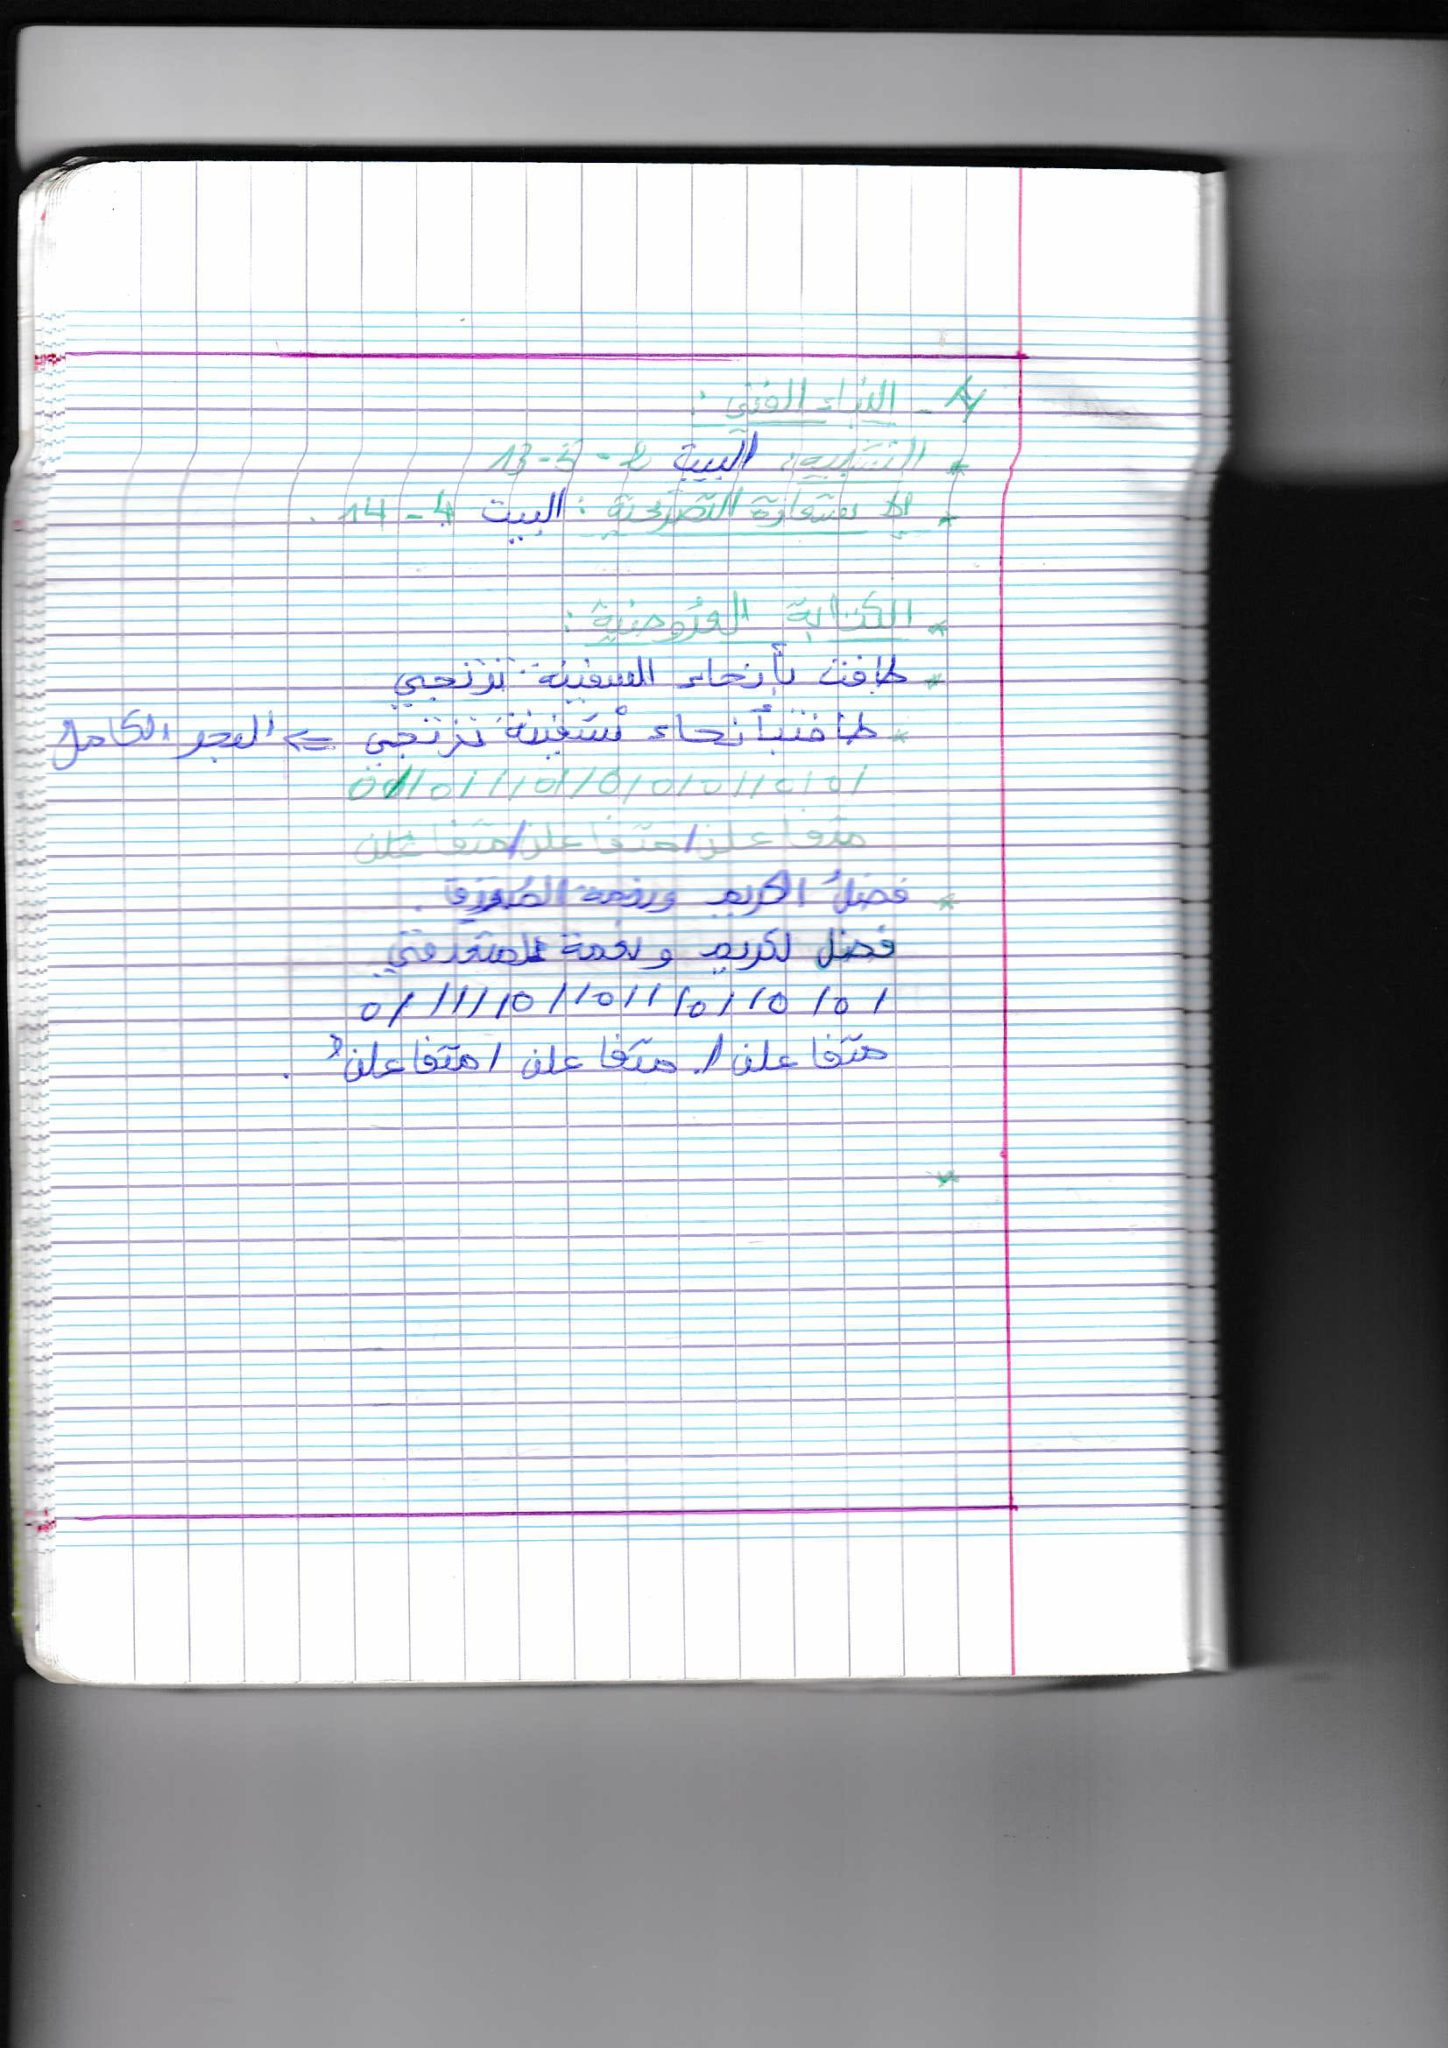 - الثراء الفني :
* التشبيه: البيت 2 - 3 - 13
* الاستعارة التصريحية : البيت 4 - 14 .
* الكتابة العروضية :
* طافت بأنحاء السفينة ترتجي
* طافتبأنحاء سسفينة ترتجي => البحر الكامل
متفاعلن/متفاعلن/متفاعلن
* فضل الكريم ونعمة
فضل لكريم ونعمة
متفاعلن / متفاعلن / متفاعلن .
*